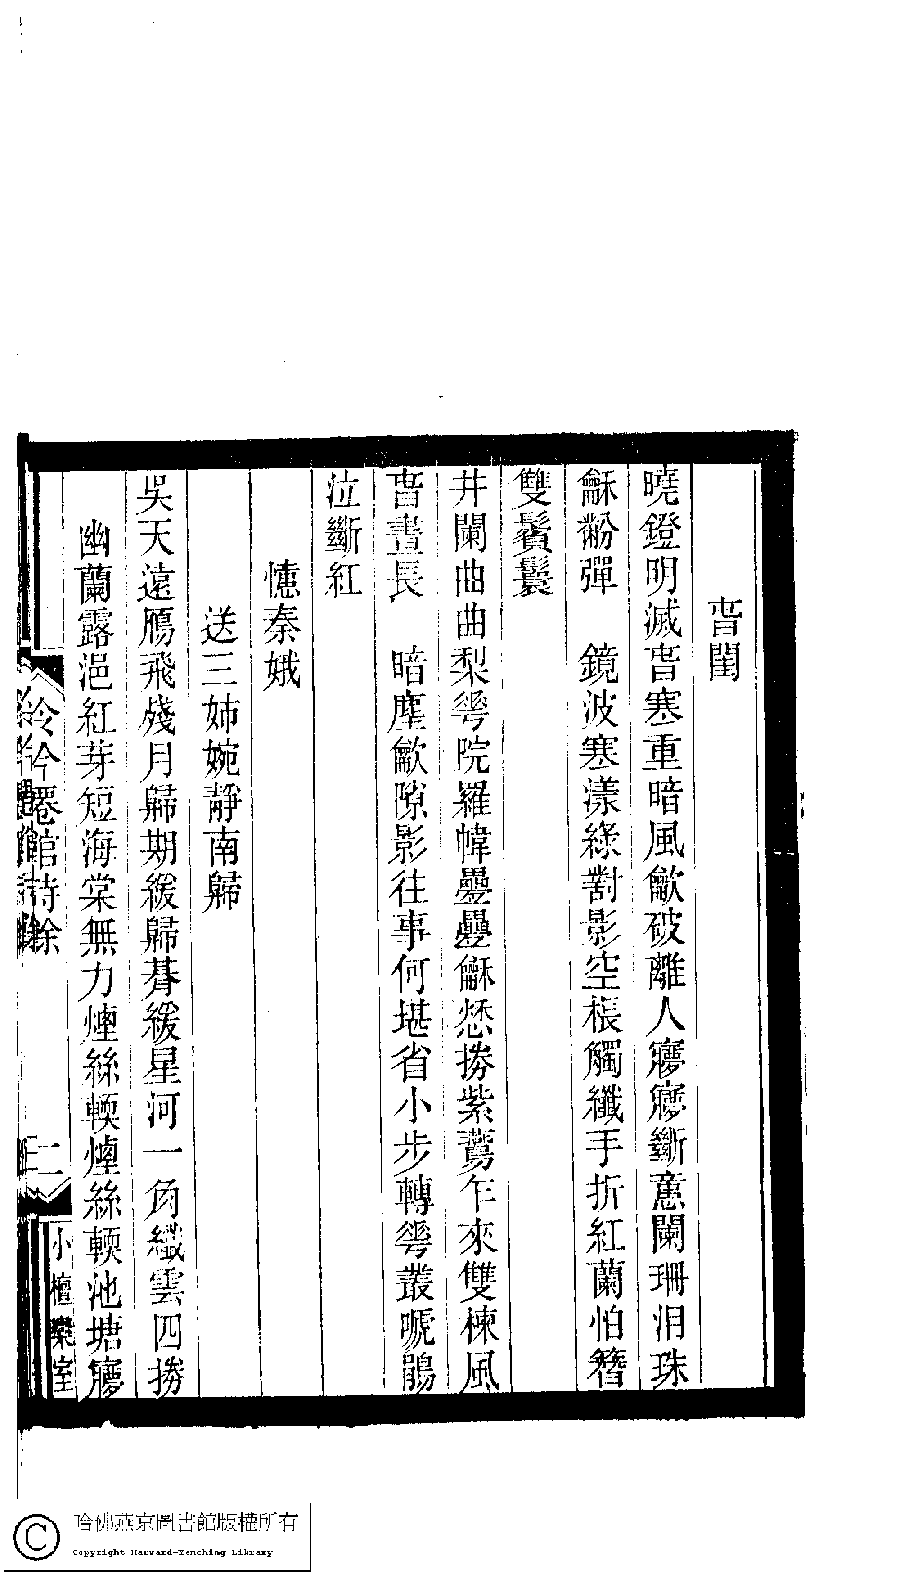 旾閨
曉鐙明滅旾寒重暗風龡破離人㝱㝱斷意闌珊泪珠
龢粉彈　鏡波寒漾綠對影空棖觸纖手折紅蘭怕簪
雙鬢鬟
井闌曲曲梨等院羅幃疊疊龢愁掩紫薎乍來雙楝風
旾晝長　暗塵龡隙影往事何堪省小步轉等叢唬鵑
泣斷紅
憶秦娥
送三姊婉靜南歸
吳天遠鴈飛殘月歸期緩歸朞緩星河一角纖雲四捲
幽蘭露浥紅芽短海棠無力煙絲輭煙絲輭池塘㝱
冷吟僊館詩餘
二
小檀欒室
哈佛燕京圖書館版權所有
Copyright Harvard-Yenching Library